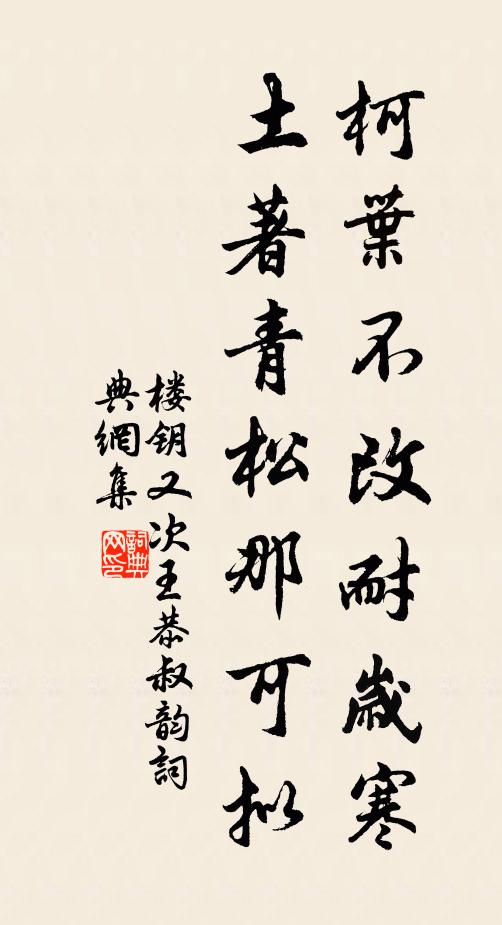 柯葉不改耐歲寒
土著青松那可拟
楼钥又次王恭叔韵詞
典網集
詞典網印